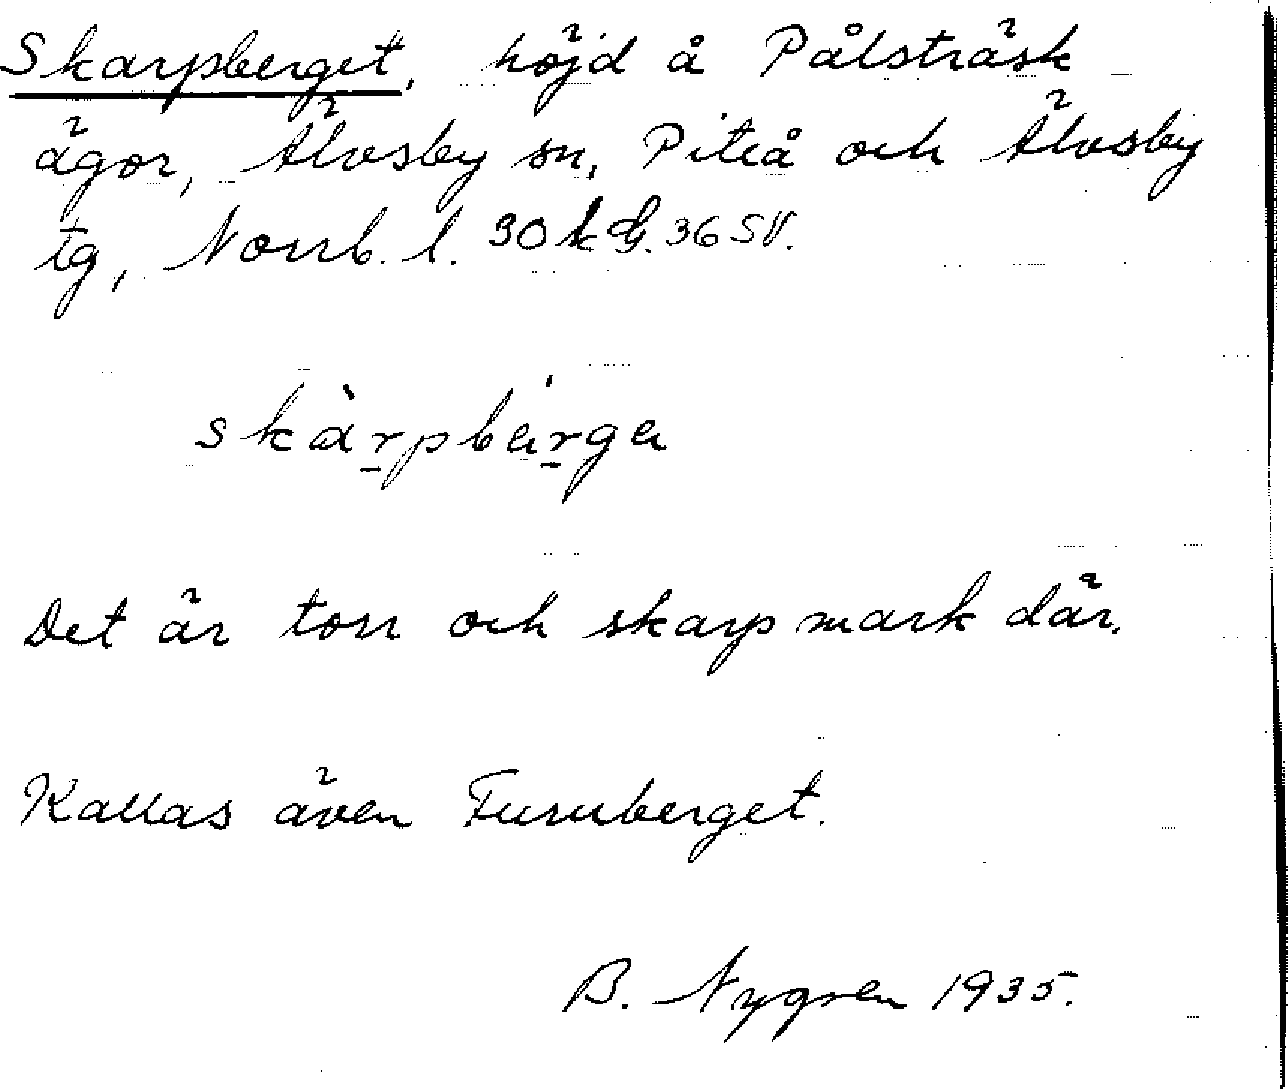 Skarpberget, höjd å Pålsträsk
ägor, Älvsby sn, Piteå och Älvsby
tg, Norrb. l. 30 k G. 36 SV.
skàrpbærga
Det är torr och skarp mark där.
Kallas även Furuberget.
B. Nygren 1935.